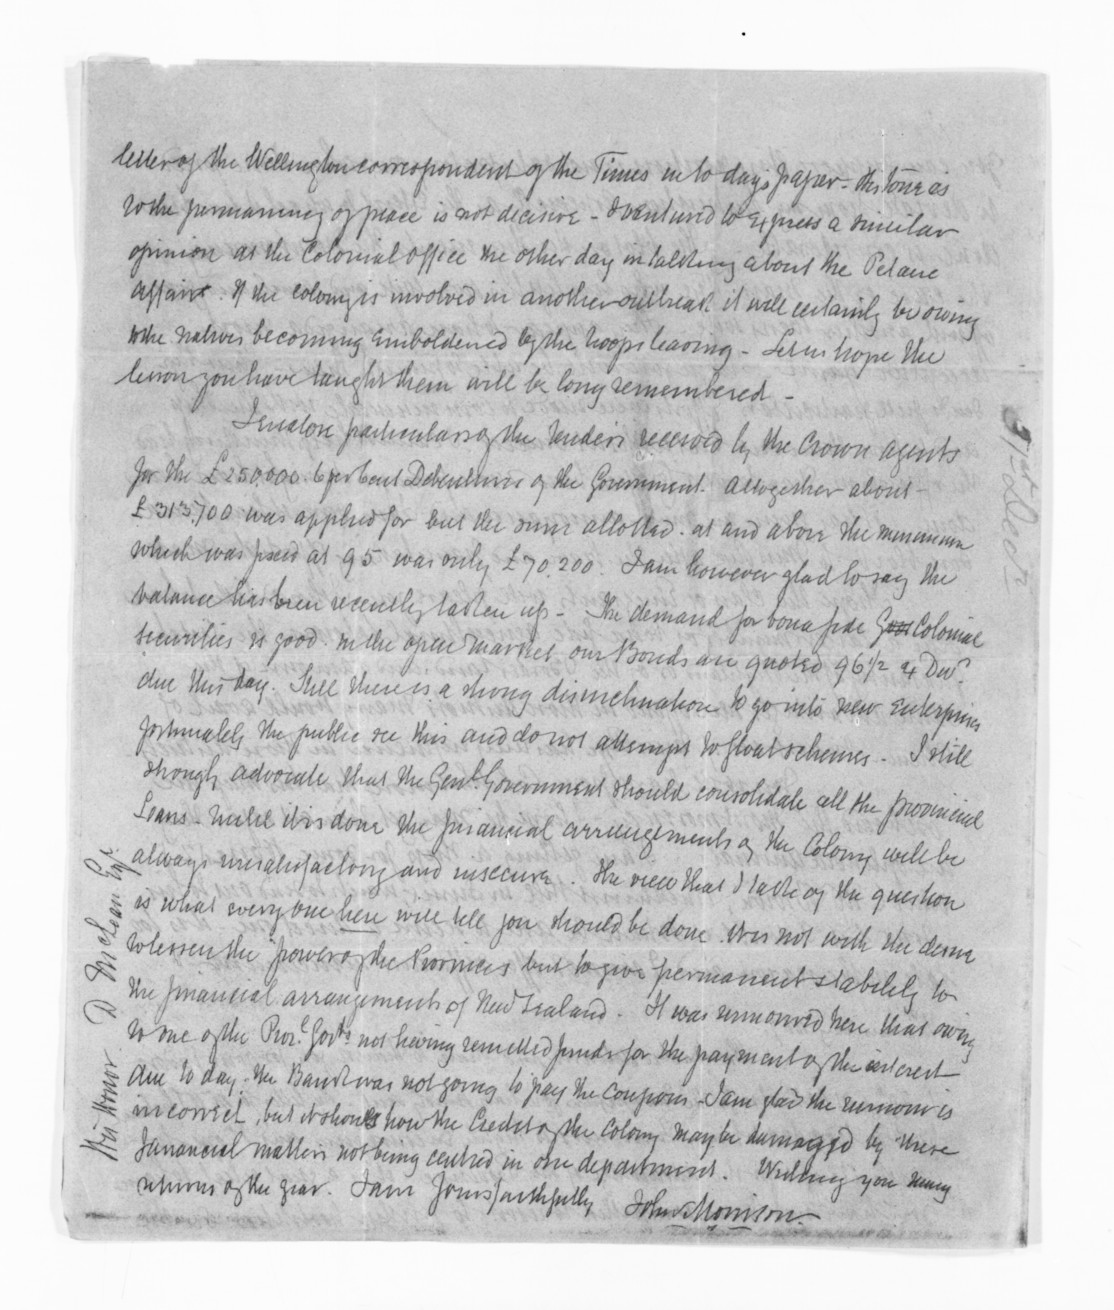 letter of the Wellington correspondent of the Times in to days paper - his tone as
to the permanency of peace is not decisive - I ventured to express a similar
opinion at the Colonial Office the other day in talking about the Petane
affair. If the colony is involved in another outbreak it will certainly be owing
to the natives becoming emboldened by the troops leaving - Let us hope the
lesson you have taught them will be long remembered -
I enclose particulars of the tenders received by the Crown Agents
for the £250,000. 6 per Cent Debentures of the Government. Altogether about -
£313,700 was applied for but the sum allotted. at and above the minimum
which was fixed at 95 was only £70,200. I am however glad to say the
balance has been recently taken up - The demand for bona fide Colonial
securities is good. In the open market our Bonds are quoted 96½ ex Divd.
due this day. Still there is a strong disinclination to go into new enterprises
fortunately the public see this and do not attempt to float schemes - I still
strongly advocate that the Genl. Government should consolidate all the provincial
Loans - Until it is done the financial arrangements of the Colony will be
always unsatisfactory and insecure. The view that I take of the question
is what every one here will tell you should be done. It is not with the desire
to lessen the power of the Provinces but to give permanent stability to
the financial arrangements of New Zealand. It was rumoured here that owing
to one of the Provl. Govts. not having remitted funds for the payment of the interest
due to day. the Bank was not going to pay the coupons - I am glad the rumour is
incorrect, but it shows how the Credit of the Colony may be damaged by these
financial matters not being centred in one department. Wishing you many
returns of the year. I am Yours faithfully John Morrison.
His Honor D McLean Esqr.
31st Decr